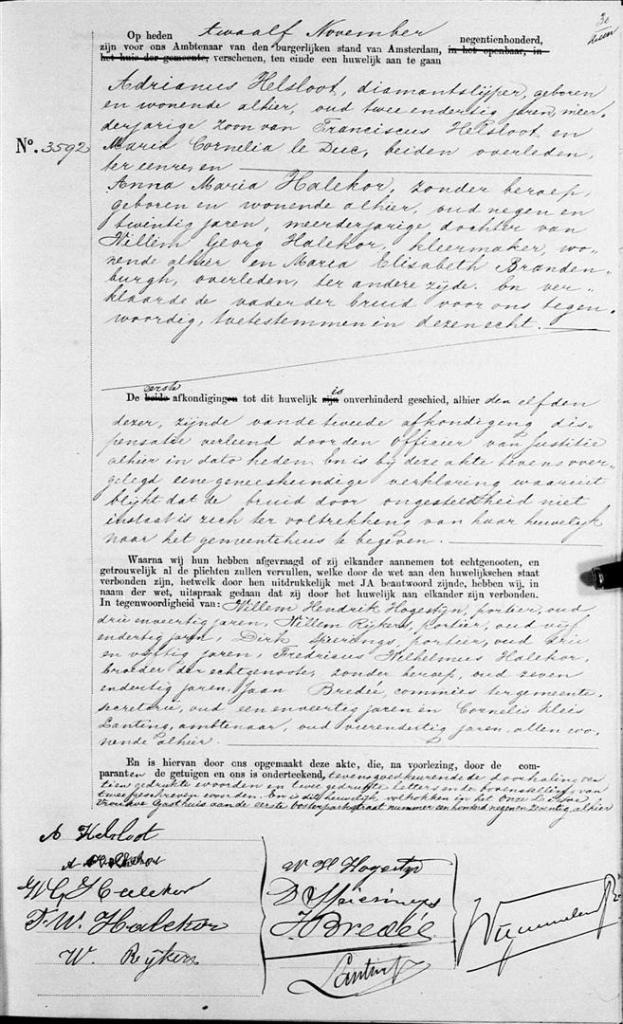 Op heden twaalf November negentienhonderd,
zijn voor ons Ambtenaar van den burgerlijken stand van Amsterdam, in het openbaar, in
het huis der gemeente, verschenen, ten einde een huwelijk aan te gaan
Adrianus Helsloot, diamantslijper, geboren
en wonende alhier, oud twee endertig jaren, meer-
derjarige zoon van Franciscus Helsloot, en
No. 3592
Maria Cornelia le Duc, beiden overleden,
ter eenre, en
Anna Maria Halekor, zonder beroep,
geboren en wonende alhier, oud negen en
twintig jaren, meerderjarige dochter van
Willem Georg Halekor, kleermaker, wo-
nende alhier en Maria Elisabeth Branden-
burgh, overleden, ter andere zijde. En ver-
klaarde de vader der bruid voor ons tegen-
woordig, toetestemmen in dezen echt.
eerste is
De beide afkondigingen tot dit huwelijk zijn onverhinderd geschied, alhier den elfden
dezer, zijnde vande tweede afkondiging dis-
pensatie verleend door den Officier van Justitie
alhier in dato heden. En is bij deze akte tevens over-
gelegd eene geneeskundige verklaring waaruit
blijkt dat de bruid door ongesteldheid niet
instaat is zich ter voltrekking van haar huwelijk
naar het gemeentehuis te begeven.
Waarna wij hun hebben afgevraagd of zij elkander aannemen tot echtgenooten, en
getrouwelijk al de plichten zullen vervullen, welke door de wet aan den huwelijkschen staat
verbonden zijn, hetwelk door hen uitdrukkelijk met JA beantwoord zijnde, hebben wij, in
naam der wet, uitspraak gedaan dat zij door het huwelijk aan elkander zijn verbonden.
In tegenwoordigheid van: Willem Hendrik Hogestijn, portier, oud
drie enveertig jaren, Willem Rijkers, portier, oud vijf
endertig jaren, Dirk Spierings, portier, oud drie
en vijftig jaren, Fredricus Wilhelmus Halekor,
broeder der echtgenoote, zonder beroep, oud zeven
endertig jaren, Jaan Bredée, commies ter gemeente-
secretarie, oud een enveertig jaren en Cornelis Kleis
Lanting, ambtenaar, oud vierendertig jaren, allen wo-
nende alhier.
En is hiervan door ons opgemaakt deze akte, die, na voorlezing, door de com-
paranten de getuigen en ons is onderteekend, tevens goedkeurende de doorhaling van
tien gedrukte woorden en twee gedrukte letters en de bovenstelling van
twee geschreven woorden. En is dit huwelijk voltrokken in het Onze Lieve
Vrouwe Gasthuis aan de eerste Oosterparkstraat nummer een honderd negen en zeventig, alhier
A Helsloot
W G Halekor
F. W. Halekor
W. Rijkers
W H Hogestijn
D Spierings
J Bredée
Lanting